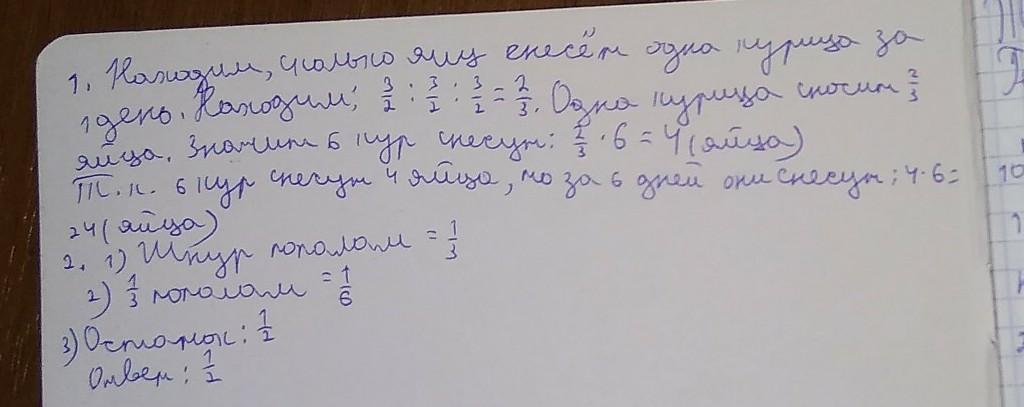 1. Находим, сколько яиц снесёт одна курица за
1 день. Находим; 3/2 : 3/2 : 3/2 = 2/3. Одна курица сносит 2/3
яйца. Значит 6 кур снесут: 2/3 · 6 = 4 (яйца)
Т.к. 6 кур снесут 4 яйца, то за 6 дней они снесут; 4·6=
24 (яйца)
2. 1) Шнур пополам = 1/3
2) 1/3 пополам = 1/6
3) Остаток: 1/2
Ответ: 1/2